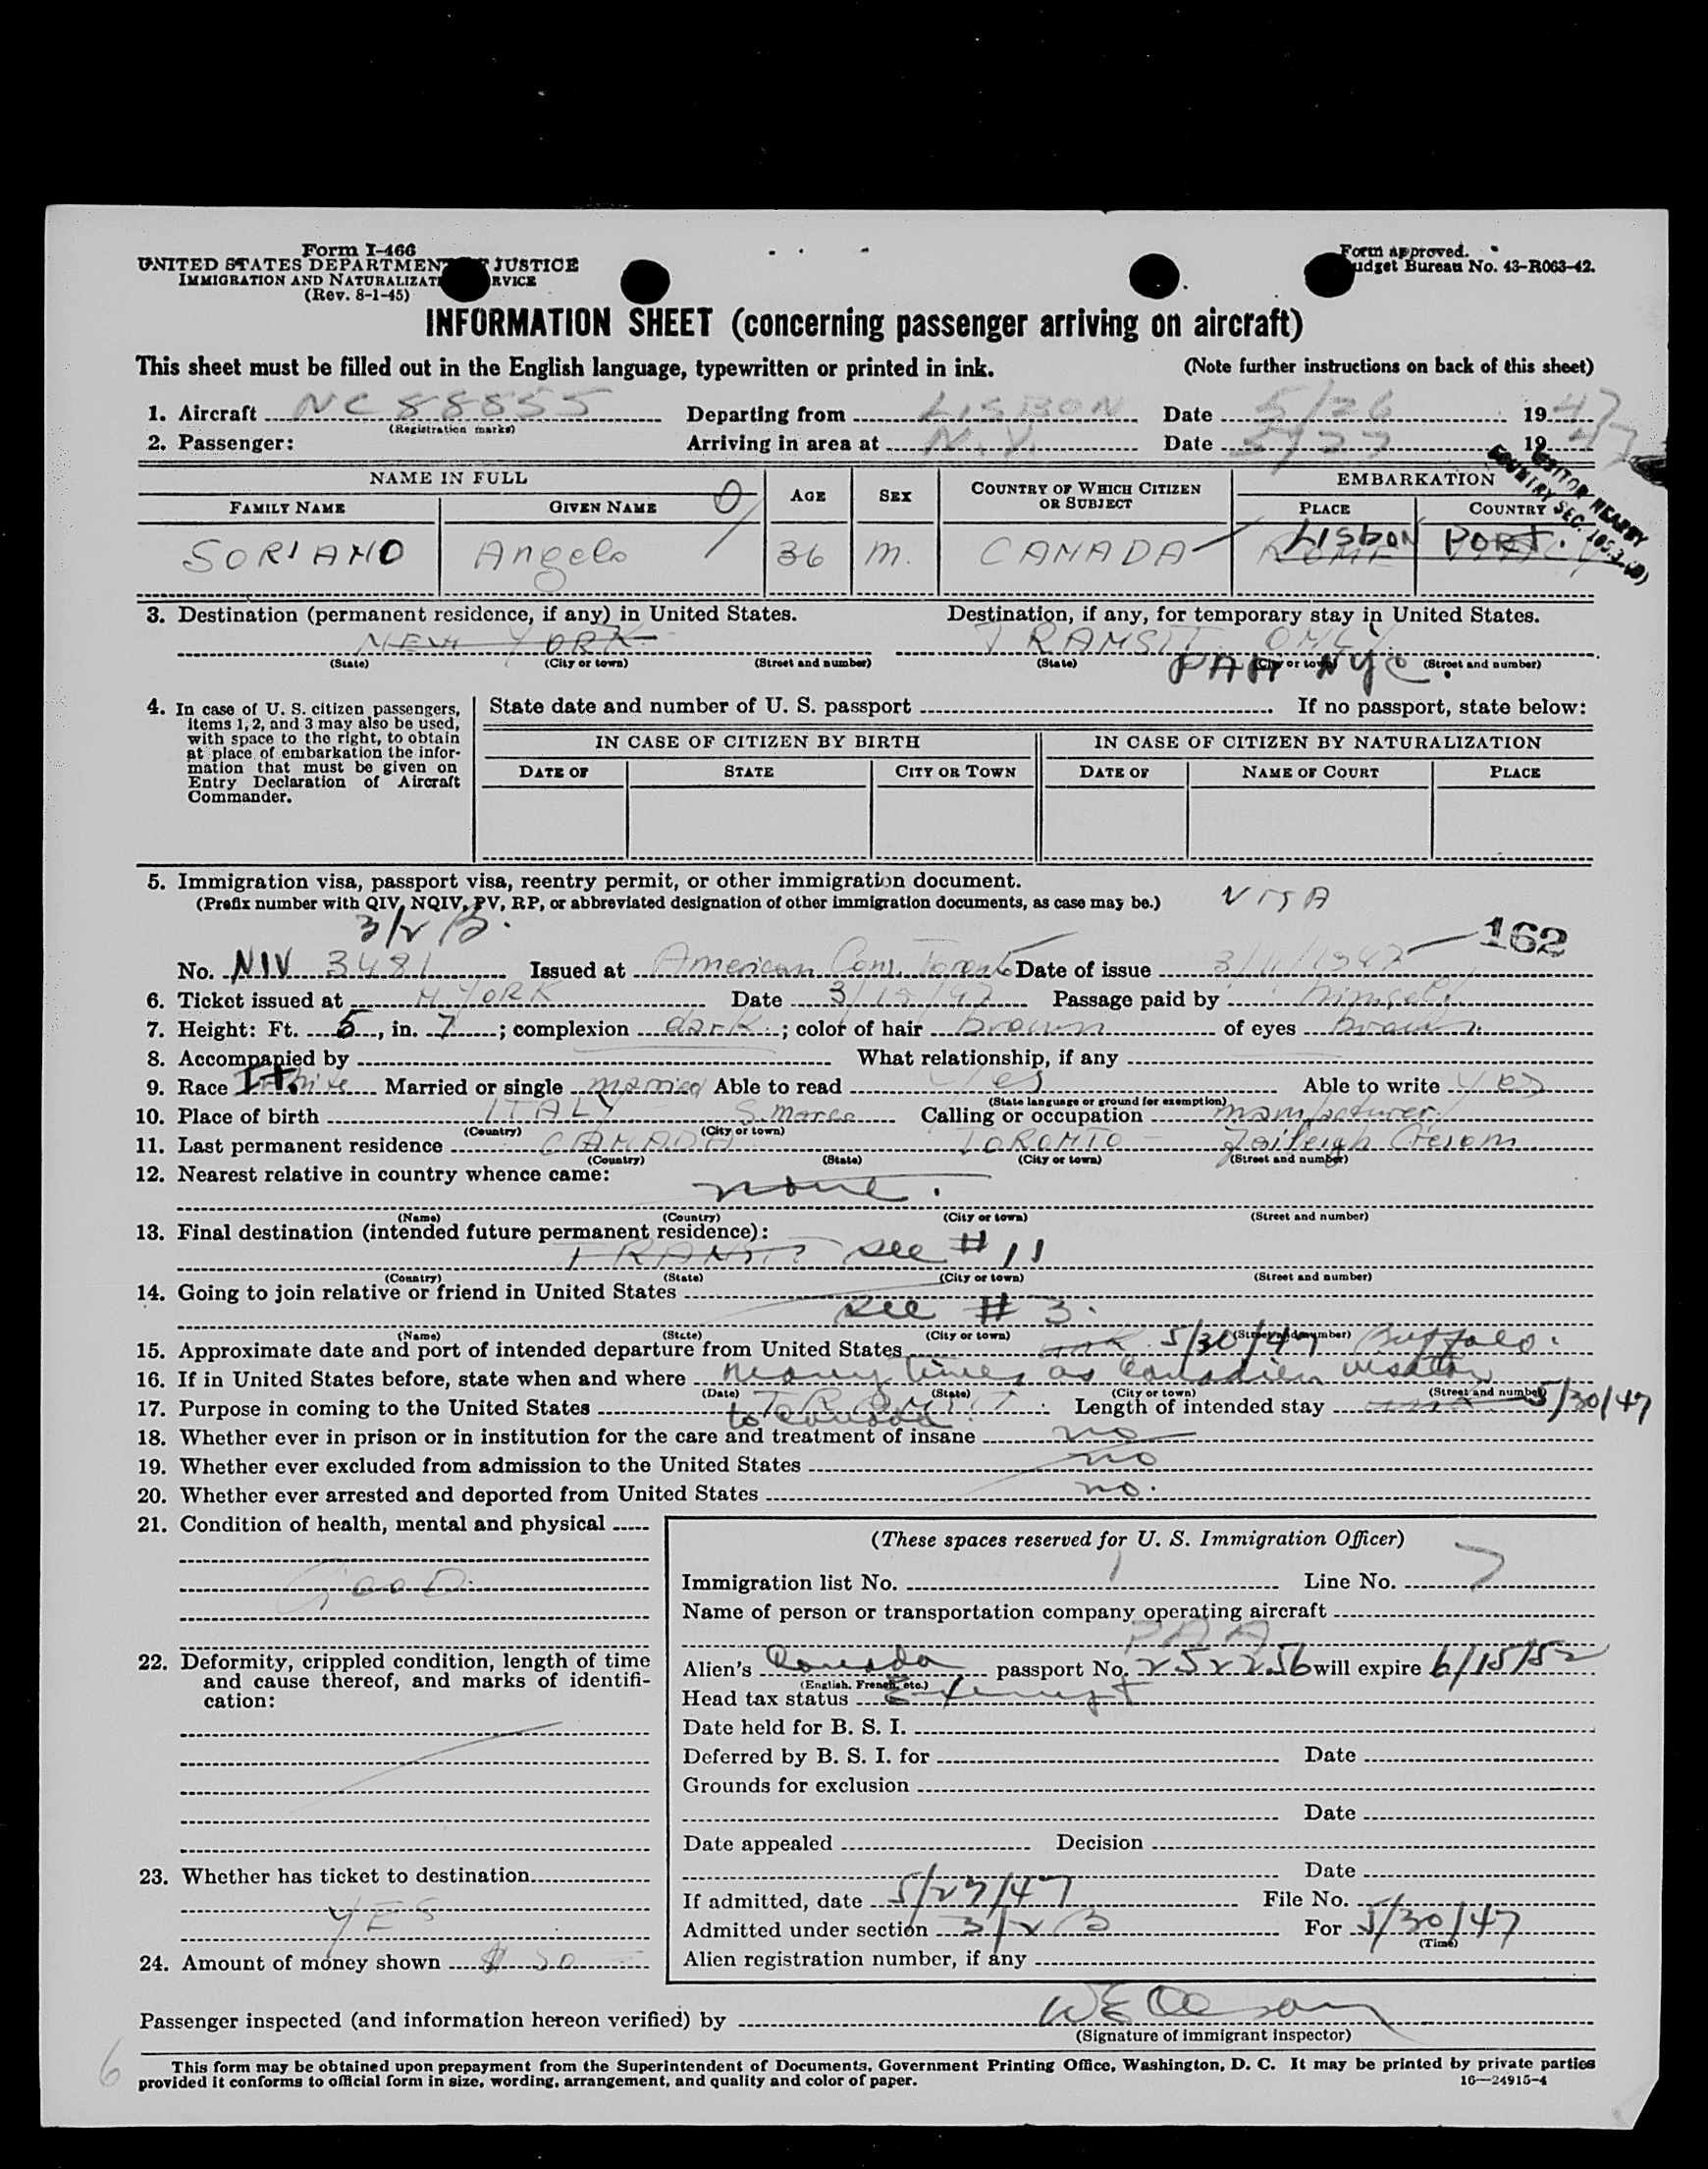 Form I-466
UNITED STATES DEPARTMENT JUSTICE
IMMIGRATION AND NATURALIZAT RVICE
(Rev. 8-1-45)
Form approved.
udget Bureau No. 43-R063-42.
INFORMATION SHEET (concerning passenger arriving on aircraft)
This sheet must be filled out in the English language, typewritten or printed in ink. (Note further instructions on back of this sheet)
1. Aircraft NC 88855 Departing from LISBON Date 5/26 1947
(Registration marks)
2. Passenger: Arriving in area at N.Y. Date 5/27 1947
VISITOR NEARBY
COUNTRY SEC. 165.3 (B)
NAME IN FULL AGE SEX COUNTRY OF WHICH CITIZEN OR SUBJECT EMBARKATION
FAMILY NAME GIVEN NAME PLACE COUNTRY
SORIANO Angelo 36 M. CANADA ROME Lisbon PORT.
3. Destination (permanent residence, if any) in United States. Destination, if any, for temporary stay in United States.
NEW YORK TRANSIT ONLY
(State) (City or town) (Street and number) (State) (City or town) (Street and number)
PAA NYC.
4. In case of U. S. citizen passengers, items 1, 2, and 3 may also be used, with space to the right, to obtain at place of embarkation the information that must be given on Entry Declaration of Aircraft Commander.
State date and number of U. S. passport If no passport, state below:
IN CASE OF CITIZEN BY BIRTH IN CASE OF CITIZEN BY NATURALIZATION
DATE OF STATE CITY OR TOWN DATE OF NAME OF COURT PLACE
5. Immigration visa, passport visa, reentry permit, or other immigration document.
(Prefix number with QIV, NQIV, PV, RP, or abbreviated designation of other immigration documents, as case may be.) VISA
3/2/B. 162
No. NIV 3481 Issued at American Con. Toronto Date of issue 3/11/1947
6. Ticket issued at N YORK Date 3/15/47 Passage paid by himself
7. Height: Ft. 5, in. 7; complexion dark; color of hair brown of eyes brown
8. Accompanied by What relationship, if any
9. Race It. White Married or single married Able to read yes Able to write yes
(State language or ground for exemption)
10. Place of birth ITALY S. Marco Calling or occupation manufacturer
(Country) (City or town)
11. Last permanent residence CANADA TORONTO
(Country) (State) (City or town) (Street and number)
12. Nearest relative in country whence came:
none.
(Name) (Country) (City or town) (Street and number)
13. Final destination (intended future permanent residence):
TRANSIT see # 11
(Country) (State) (City or town) (Street and number)
14. Going to join relative or friend in United States
see # 3.
(Name) (State) (City or town) (Street and number)
15. Approximate date and port of intended departure from United States 5/30/47 Buffalo.
16. If in United States before, state when and where Many times as Canadien visitor
(Date) (State) (City or town) (Street and number)
17. Purpose in coming to the United States TRANSIT Length of intended stay 5/30/47
to Canada.
18. Whether ever in prison or in institution for the care and treatment of insane no
19. Whether ever excluded from admission to the United States no
20. Whether ever arrested and deported from United States no.
21. Condition of health, mental and physical
GOOD.
22. Deformity, crippled condition, length of time and cause thereof, and marks of identification:
23. Whether has ticket to destination
YES
24. Amount of money shown $ 20
(These spaces reserved for U. S. Immigration Officer)
Immigration list No. 1 Line No. 7
Name of person or transportation company operating aircraft
PAA
Alien's Canada passport No. 252256 will expire 6/15/52
(English, French, etc.)
Head tax status Exempt
Date held for B. S. I.
Deferred by B. S. I. for Date
Grounds for exclusion
Date
Date appealed Decision
Date
If admitted, date 5/27/47 File No.
Admitted under section 3/2/B For 5/30/47
(Time)
Alien registration number, if any
Passenger inspected (and information hereon verified) by
(Signature of immigrant inspector)
6
This form may be obtained upon prepayment from the Superintendent of Documents, Government Printing Office, Washington, D. C. It may be printed by private parties
provided it conforms to official form in size, wording, arrangement, and quality and color of paper. 16—24915-4